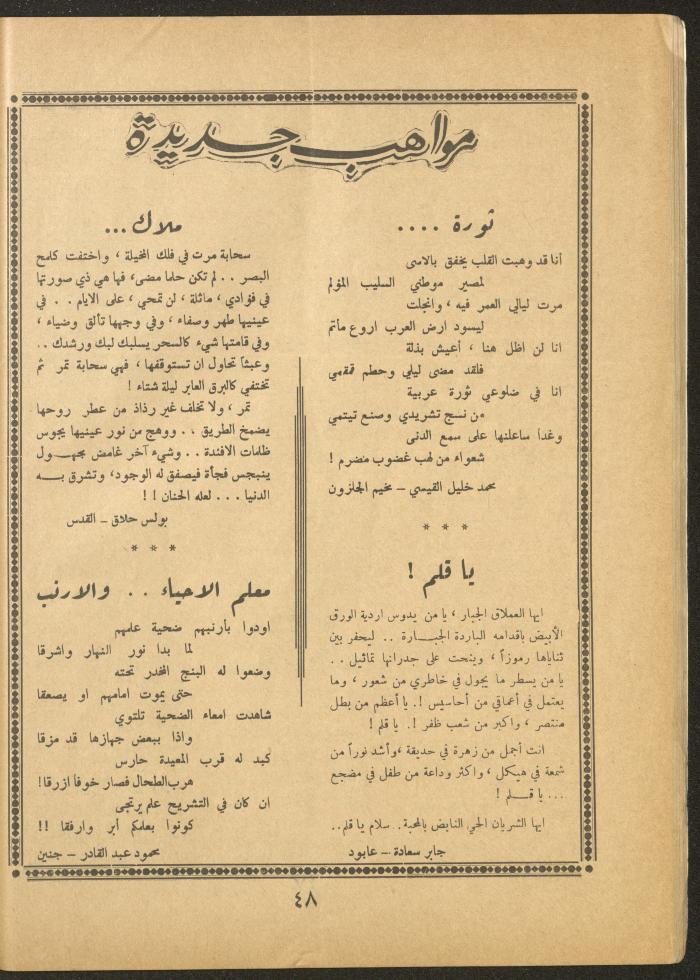 مواهب جديدة
ثورة ....
أنا قد وهبت القلب يخفق بالاسى
لمصير موطني السليب المؤلم
مرت ليالي العمر فيه ، وانجلت
ليسود ارض العرب اروع مأتم
انا لن اظل هنا ، أعيش بذلة
فلقد مضى ليلي وحطم قمقمي
انا في ضلوعي ثورة عربية
من نسج تشريدي وصنع تيتمي
وغداً ساعلنها على سمع الدنى
شعواء من لهب غضوب مضرم !
محمد خليل القيسي – مخيم الجلزون
* * *
يا قلم !
ايها العملاق الجبار ، يا من يدوس اردية الورق
الأبيض باقدامه الباردة الجبــارة .. ليحفر بين
ثناياها رموزاً ، وينحت على جدرانها تماثيل ..
يا من يسطر ما يجول في خاطري من شعور ، وما
يعتمل في أعماقي من أحاسيس !. يا أعظم من بطل
منتصر ، واكبر من شعب ظفر !. يا قلم !
انت أجمل من زهرة في حديقة ،وأشد نوراً من
شمعة في هيكل ، واكثر وداعة من طفل في مضجع
... يا قــلم !
ايها الشريان الحي النابض بالمحبة.. سلام يا قلم..
جابر سعادة – عابود
ملاك...
سحابة مرت في فلك المخيلة ، واختفت كلمح
البصر .. لم تكن حلما مضى، فها هي ذي صورتها
في فؤادي ، ماثلة ، لن تمحي ، على الايام .. في
عينيها طهر وصفاء ، وفي وجهها تألق وضياء ،
وفي قامتها شيء كالسحر يسلبك لبك ورشدك ..
وعبثاً تحاول ان تستوقفها ، فهي سحابة تمر ثم
تختفي كالبرق العابر ليلة شتاء !
تمر ، ولا تخلف غير رذاذ من عطر روحها
يضمخ الطريق .. ووهج من نور عينيها يجوس
ظلمات الافئدة .. وشيء آخر غامض مجهــول
ينبجس فجأة فيصفق له الوجود، وتشرق بــه
الدنيا ... لعله الحنان ! !
بولس حلاق – القدس
* * *
معلم الاحياء .. والارنب
اودوا بأرنبهم ضحية علمهم
لما بدا نور النهار واشرقا
وضعوا له البنج المخدر تحته
حتى يموت امامهم او يصعقا
شاهدت امعاء الضحية تلتوي
واذا ببعض جهازها قد مزقا
كبد له قرب المعيدة حارس
هرب الطحال فصار خوفاً ازرقا!
ان كان في التشريح علم يرتجى
كونوا بعلمكم أبر وارفقا !!
محمود عبد القادر – جنين
٤٨